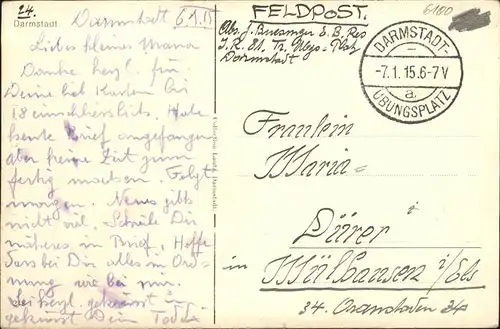 24.
Darmstadt
Darmstadt 6.1.15
Liebes kleines Maria
Danke herzl. für
Deine lieb Karten bis
18 einschliesslich. Habe
heute Brief angefangen
aber keine Zeit zum
fertig machen. Folgt
morgen. Neues gibts
nicht viel. Schreibe Dir
näheres im Brief. Hoffe
dass bei Dir alles in Ord=
nung wie bei mir.
Sei herzl. gegrüsst u.
geküsst Dein
Collection Lautz, Darmstadt.
FELDPOST.
Abs. J. E. B. Res
I. R. 81. Tr. Übgs-Platz
Darmstadt
6100
DARMSTADT-
-7.1.15.6-7V
a
ÜBUNGSPLATZ
Fräulein
Maria=
Dürer
in Mülhausen i/Els
34. 34